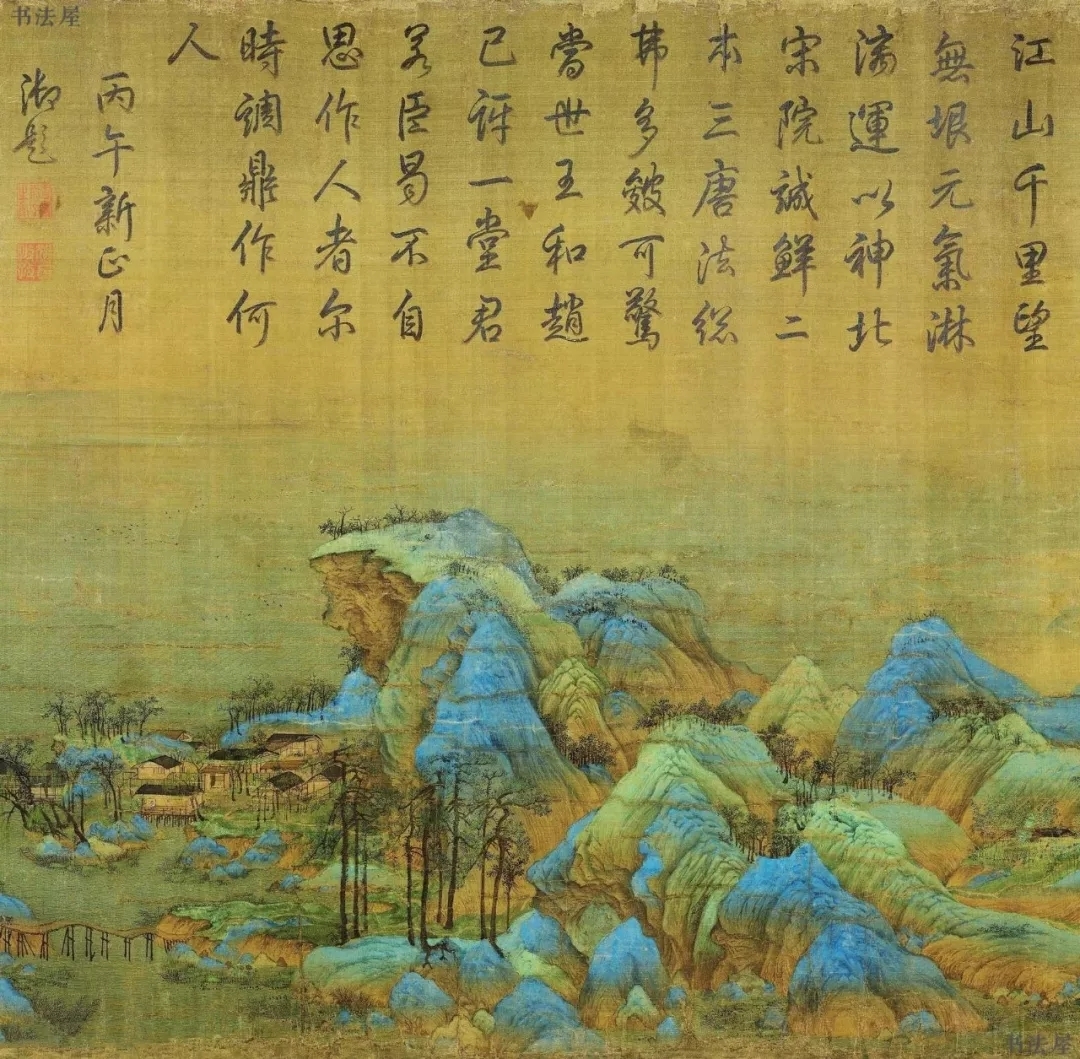 书法屋
江山千里望
無垠元氣淋
漓運以神北
宋院誠鮮二
本三唐法總
弗多皴可驚
當世王和趙
已訝一堂君
若臣曷不自
思作人者尔
時調鼎作何
人
丙午新正月
御題
书法屋